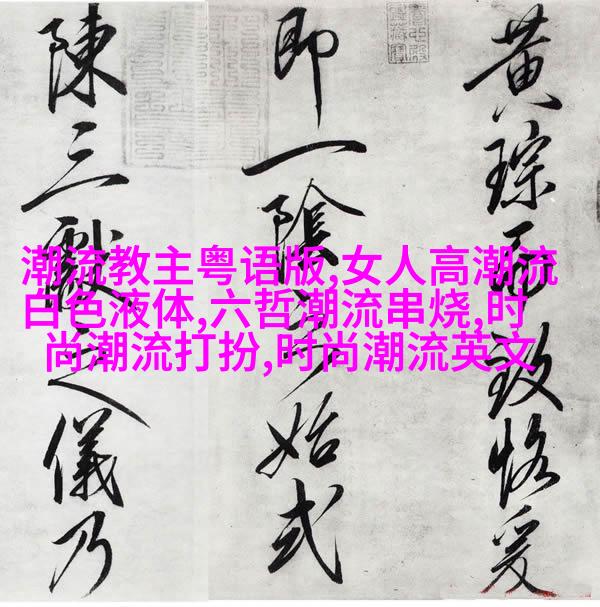 黄琮而致恪爰
即一陰之始式
陳三獻之儀乃
潮流教主粤语版,女人高潮流
白色液体,六哲潮流串烧,时
尚潮流打扮,时尚潮流英文